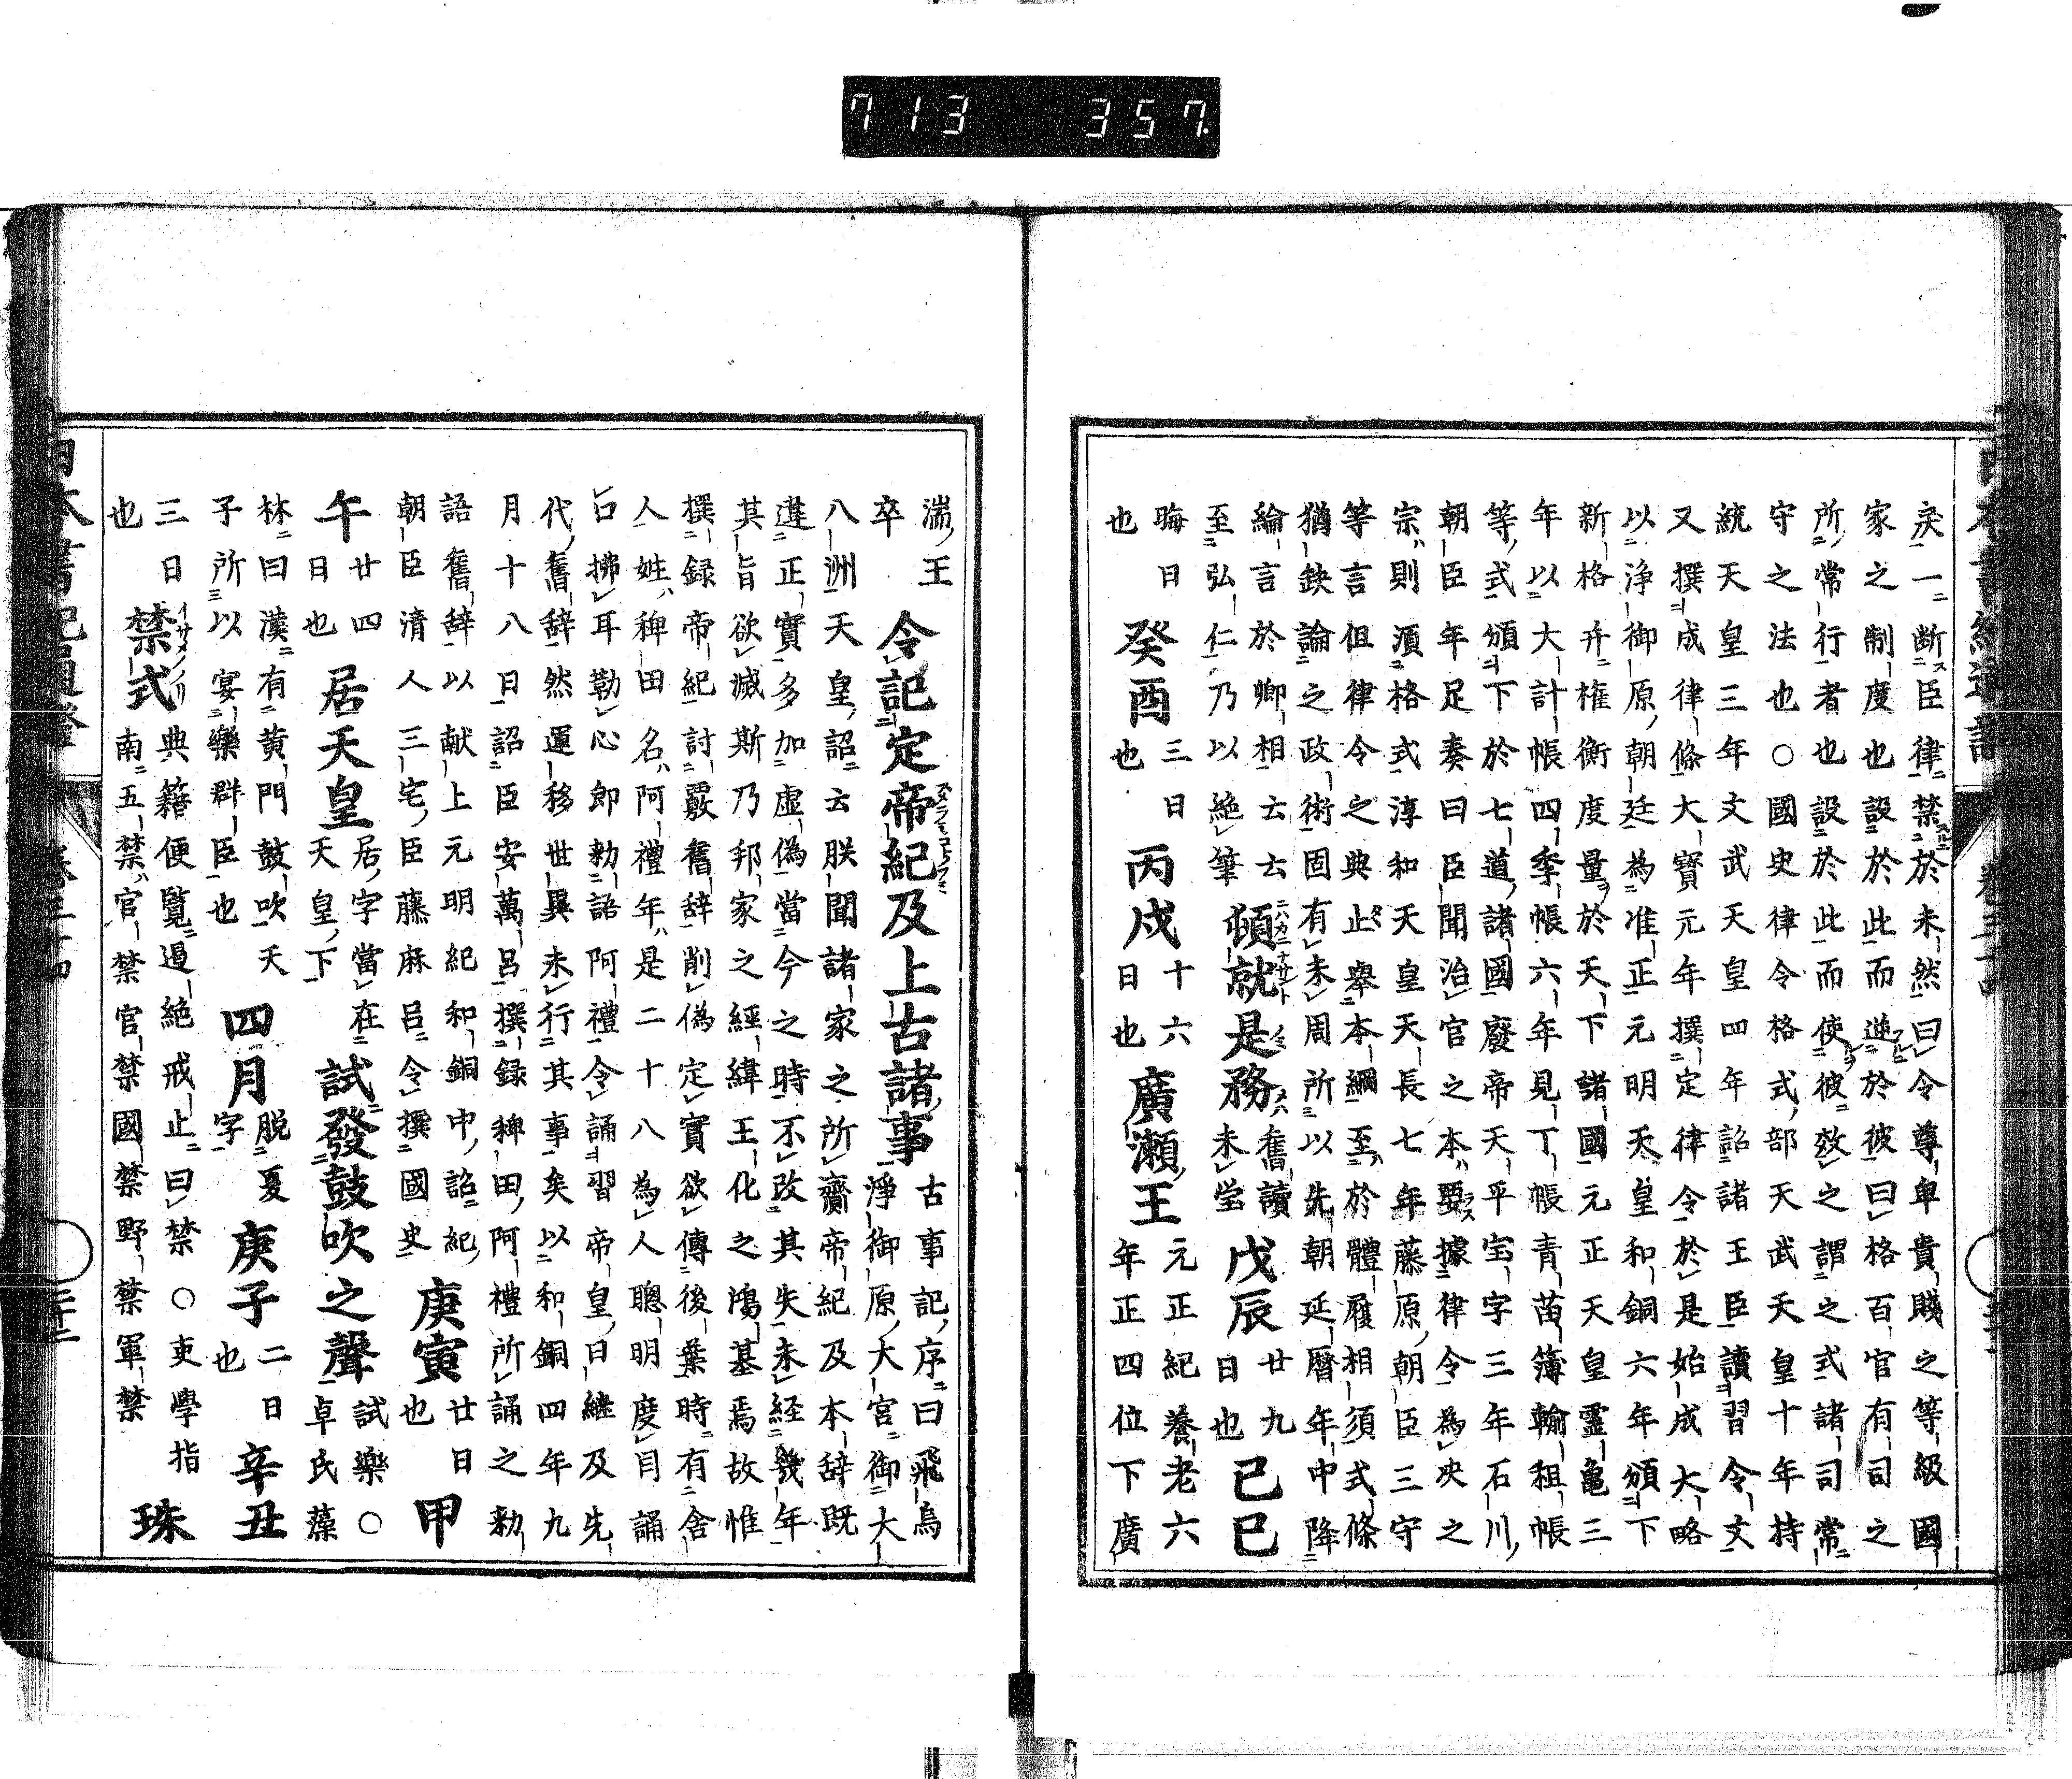 713 357
戾一断臣律禁於未然曰令尊卑貴賤之等級國
家之制度也設於此而逆於彼曰格百官有司之
所常行者也設於此而使彼效之謂之式諸司常
守之法也○國史律令格式部天武天皇十年持
統天皇三年文武天皇四年詔諸王臣讀習令文
又撰成律條大寳元年撰定律令於是始成大略
以淨御原朝廷為准正元明天皇和銅六年頒下
新格幷権衡度量於天下諸國元正天皇霊亀三
年以大計帳四季帳六年見丁帳青苗簿輸租帳
等式頒下於七道諸國廢帝天平宝字三年石川
朝臣年足奏曰臣聞治官之本要據律令為决之
宗則湏格式淳和天皇天長七年藤原朝臣三守
等言但律令之典止舉本綱至於體履相須式條
猶鈌論之政術固有未周所以先朝延暦年中降
綸言於卿相云云
至弘仁乃以絶筆
頓就是務 舊讀未堂 戊辰 廿九日也 己巳
晦日也 癸酉 三日也 丙戍 十六日也 廣瀬王 元正紀養老六年正四位下廣
湍王卒 令記定帝紀及上古諸事 古事記序曰飛鳥淨御原大宮御大
八洲天皇詔云朕聞諸家之所齎帝紀及本辞既
違正實多加虚偽當今之時不改其失未経幾年
其旨欲滅斯乃邦家之經緯王化之鴻基焉故惟
撰録帝紀討覈舊辞削偽定實欲傳後葉時有舎
人姓稗田名阿禮年是二十八為人聰明度目誦
口拂耳勒心即勅語阿禮令誦習帝皇日継及先
代舊辞然運移世異未行其事矣以和銅四年九
月十八日詔臣安萬呂撰録稗田阿禮所誦之勅
語舊辞以献上元明紀和銅中詔紀
朝臣清人三宅臣藤麻呂令撰國史
庚寅 廿日也 甲
午 廿四日也 居天皇 居字當在天皇下 試發鼓吹之聲 試樂○卓氏藻
林曰漢有黄門鼓吹天
子所以宴樂群臣也
四月 脱夏字 庚子 二日也 辛丑
三日也 禁式 典籍便覧過絶戒止曰禁○吏學指南五禁官禁官禁國禁野禁軍禁 珠